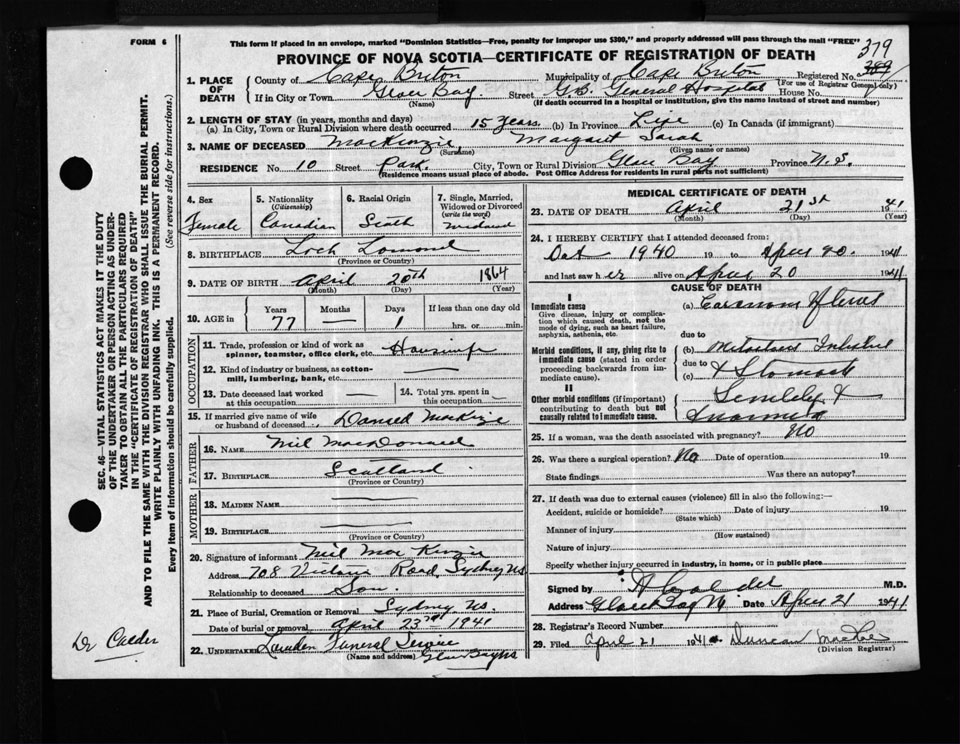 FORM 6
This form if placed in an envelope, marked "Dominion Statistics—Free, penalty for improper use $300," and properly addressed will pass through the mail "FREE"
379
PROVINCE OF NOVA SCOTIA—CERTIFICATE OF REGISTRATION OF DEATH
1. PLACE OF DEATH
County of Cape Breton Municipality of Cape Breton Registered No.
(For use of Registrar General only)
If in City or Town Glace Bay. Street G.B. General Hospital House No.
(Name) (If death occurred in a hospital or institution, give the name instead of street and number)
2. LENGTH OF STAY (in years, months and days)
(a) In City, Town or Rural Division where death occurred 15 Years. (b) In Province Life (c) In Canada (if immigrant)
3. NAME OF DECEASED MacKenzie, Margaret Sarah
(Surname) (Given name or names)
RESIDENCE No. 10 Street Park. City, Town or Rural Division Glace Bay Province N.S.
(Residence means usual place of abode. Post Office Address for residents in rural parts not sufficient)
4. Sex
Female
5. Nationality
(Citizenship)
Canadian
6. Racial Origin
Scotch
7. Single, Married, Widowed or Divorced
(write the word)
Widowed
8. BIRTHPLACE Loch Lomond
(Province or Country)
9. DATE OF BIRTH April 20th 1864
(Month) (Day) (Year)
10. AGE in
Years Months Days If less than one day old
77 — 1 hrs. or min.
OCCUPATION
11. Trade, profession or kind of work as spinner, teamster, office clerk, etc. Housewife
12. Kind of industry or business, as cotton-mill, lumbering, bank, etc. —
13. Date deceased last worked at this occupation —
14. Total yrs. spent in this occupation —
15. If married give name of wife or husband of deceased Daniel MacKenzie
FATHER
16. NAME Neil MacDonald
17. BIRTHPLACE Scotland
(Province or Country)
MOTHER
18. MAIDEN NAME —
19. BIRTHPLACE —
(Province or Country)
20. Signature of informant Neil MacKenzie
Address 708 Victoria Road, Sydney NS
Relationship to deceased Son.
21. Place of Burial, Cremation or Removal Sydney NS.
Date of burial or removal April 23rd 1941
22. UNDERTAKER Funeral Service
(Name and address) Glace Bay NS
MEDICAL CERTIFICATE OF DEATH
23. DATE OF DEATH April 21st 1941
(Month) (Day) (Year)
24. I HEREBY CERTIFY that I attended deceased from:
Oct 1940 19 to April 20 1941
and last saw her alive on April 20 1941
CAUSE OF DEATH
I
Immediate cause
Give disease, injury or complication which caused death, not the mode of dying, such as heart failure, asphyxia, asthenia, etc.
(a) Carcinoma of
due to
Morbid conditions, if any, giving rise to immediate cause (stated in order proceeding backwards from immediate cause).
(b)
due to
(c) & Stomach
II
Other morbid conditions (if important) contributing to death but not causally related to immediate cause.
Senility &
25. If a woman, was the death associated with pregnancy? No
26. Was there a surgical operation? No Date of operation 19
State findings Was there an autopsy?
27. If death was due to external causes (violence) fill in also the following:—
Accident, suicide or homicide? Date of injury 19
(State which)
Manner of injury
(How sustained)
Nature of injury
Specify whether injury occurred in industry, in home, or in public place
Signed by A Calder M.D.
Address Glace Bay Date April 21 1941
28. Registrar's Record Number
29. Filed April 21 1941 Duncan
(Division Registrar)
SEC. 46—VITAL STATISTICS ACT MAKES IT THE DUTY
OF THE UNDERTAKER OR PERSON ACTING AS UNDERTAKER TO OBTAIN ALL THE PARTICULARS REQUIRED
IN THE "CERTIFICATE OF REGISTRATION OF DEATH"
AND TO FILE THE SAME WITH THE DIVISION REGISTRAR WHO SHALL ISSUE THE BURIAL PERMIT.
WRITE PLAINLY WITH UNFADING INK. THIS IS A PERMANENT RECORD.
Every item of information should be carefully supplied. (See reverse side for instructions.)
Dr Calder